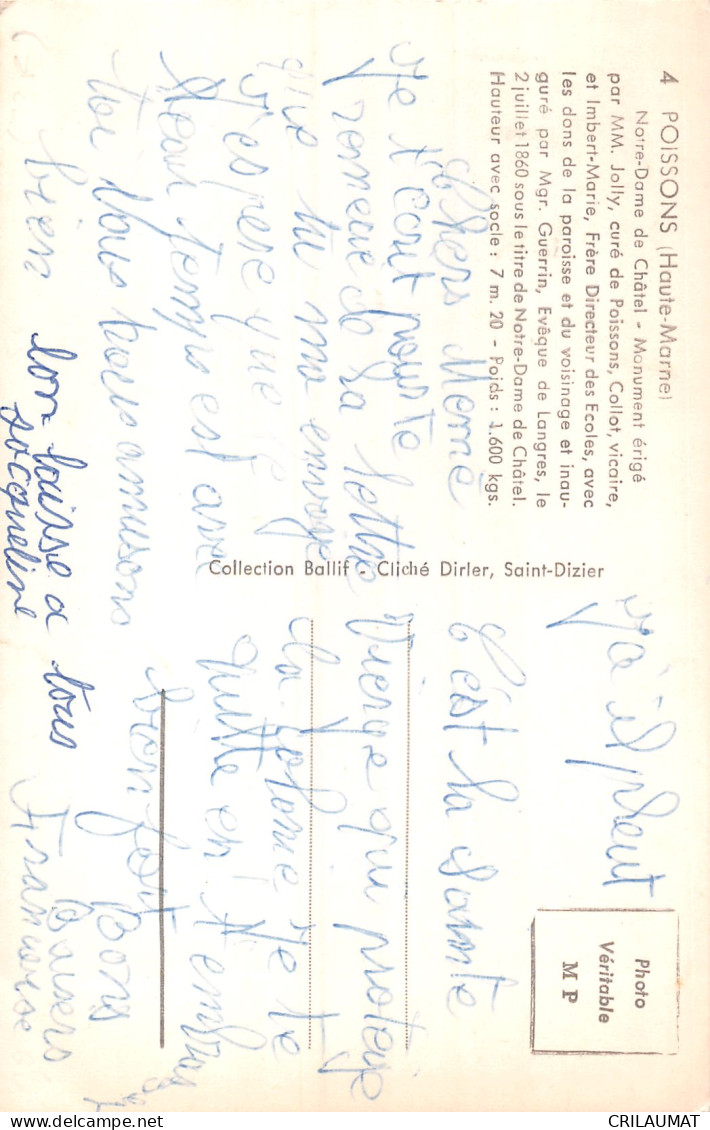 4 POISSONS (Haute-Marne)
Notre-Dame de Châtel - Monument érigé
par MM. Jolly, curé de Poissons, Collot, vicaire,
et Imbert-Marie, Frère Directeur des Ecoles, avec
les dons de la paroisse et du voisinage et inau-
guré par Mgr. Guerrin, Evêque de Langres, le
2 juillet 1860 sous le titre de Notre-Dame de Châtel.
Hauteur avec socle : 7 m. 20 - Poids : 1.600 kgs.
Collection Ballif - Cliché Dirler, Saint-Dizier
Photo
Véritable
M P
Chers Mémé
Je t'ecrit pour te
de la lettre
que tu ma envoye
J'espere que le
temps est avec
toi Nous nous amusons
bien
il pleut
C'est la Sainte
Vierge qui protege
la Je te
quitte en t'embra
bien fort
Bons
Baisers
Francoise
bon baisse a tous
Jocqueline
CRILAUMAT